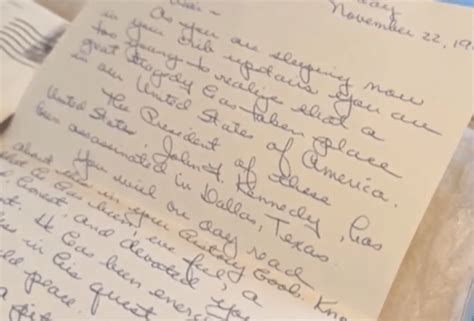 day
November 22, 19
As you are sleeping now
in your crib upstairs you are
too young to realize that a
great tragedy has taken place
in our United States of America.
The President of these
United States, John F. Kennedy, has
been assassinated in Dallas, Texas
You will one day read
about in your history book. Kno
he was, we feel, a
honest, and devoted you
He has been ener
in his quest
peace.